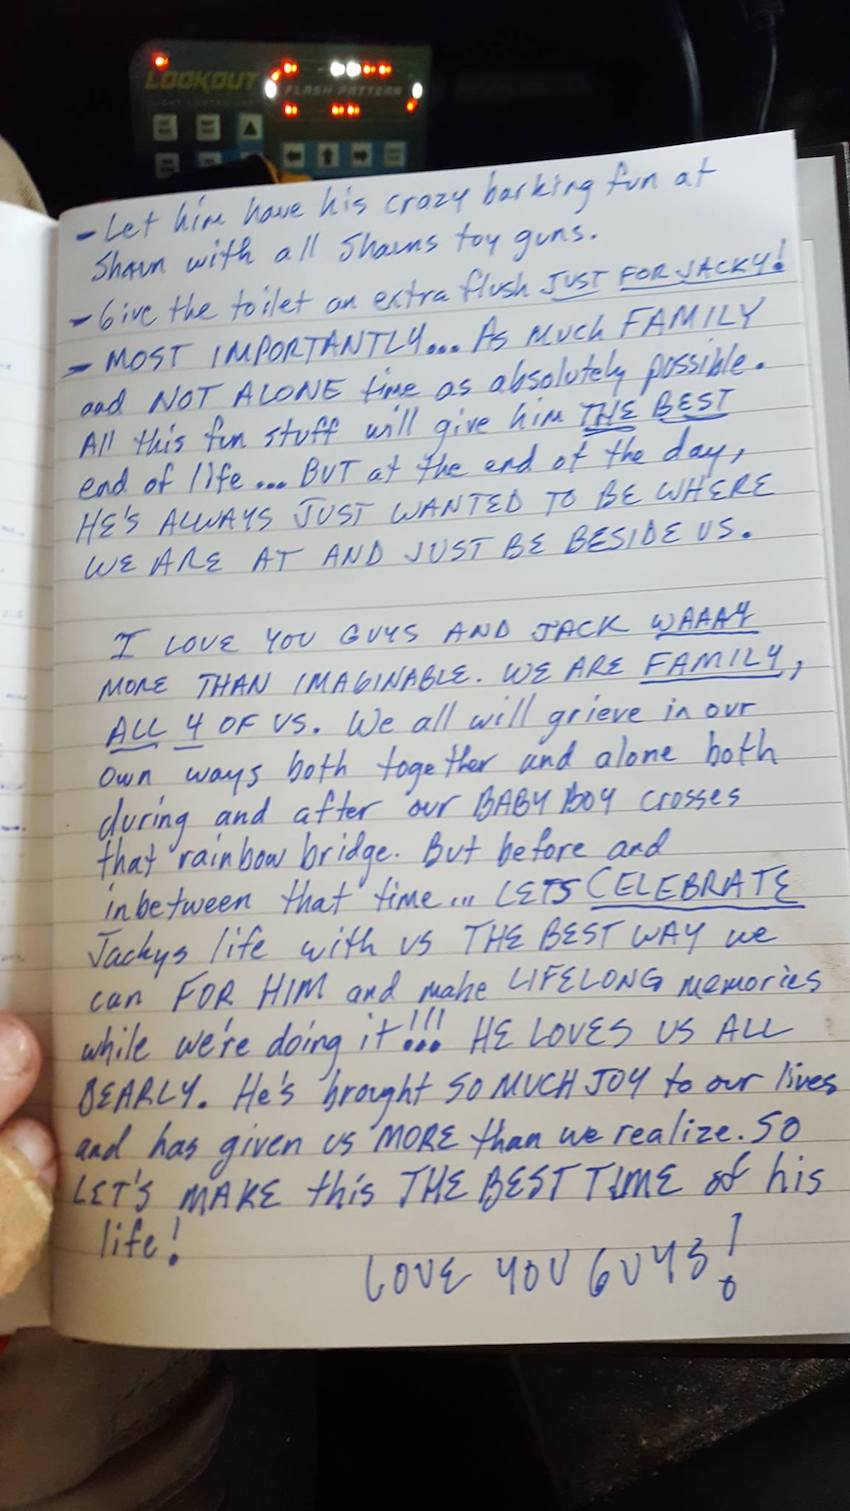 LOOKOUT
FLASH PATTERN
- Let him have his crazy barking fun at
Shaun with all Shauns toy guns.
- Give the toilet an extra flush JUST FOR JACKY!
- MOST IMPORTANTLY... As Much FAMILY
and NOT ALONE time as absolutely possible.
All this fun stuff will give him THE BEST
end of life... BUT at the end of the day,
HE'S ALWAYS JUST WANTED TO BE WHERE
WE ARE AT AND JUST BE BESIDE US.
I LOVE YOU GUYS AND JACK WAAAY
MORE THAN IMAGINABLE. WE ARE FAMILY,
ALL 4 OF US. We all will grieve in our
own ways both together and alone both
during and after our BABY BOY crosses
that rainbow bridge. But before and
inbetween that time... LETS CELEBRATE
Jackys life with us THE BEST WAY we
can FOR HIM and make LIFELONG memories
while we're doing it!!! HE LOVES US ALL
DEARLY. He's brought SO MUCH JOY to our lives
and has given us MORE than we realize. SO
LET'S MAKE this THE BEST TIME of his
life!
LOVE YOU GUYS!